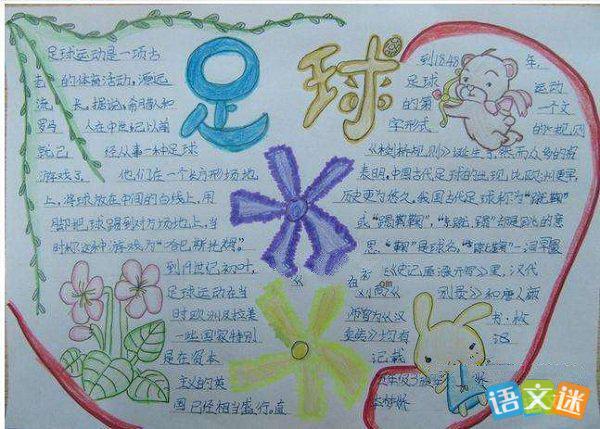 足球
足球运动是一项古
老的体育活动,源远
流长。据说,希腊人和
罗马人在中世纪以前
就已经从事一种足球
游戏了。他们在一个长方形场地
上,将球放在中间的白线上,用
脚把球踢到对方场地上,当
时称这种游戏为
到19世纪初叶,
足球运动在当
时欧洲及拉美
一些国家特别
是在资本
主义的英
国已经相当盛行。直
到1848年,
足球运动
的第一个文
字形式的规则
诞生了。然而众多的资
料表明,中国古代足球的出现比欧洲更早,
历史更为悠久。我国古代足球称为“蹴鞠”
或“蹋鞠”,“蹴”、“蹋”都是踢的意
思,“鞠”是球名。“蹴鞠”一词早最
在《史记·苏秦列传》里,汉代
别录》和唐人颜
书·枚
记载
语文迷